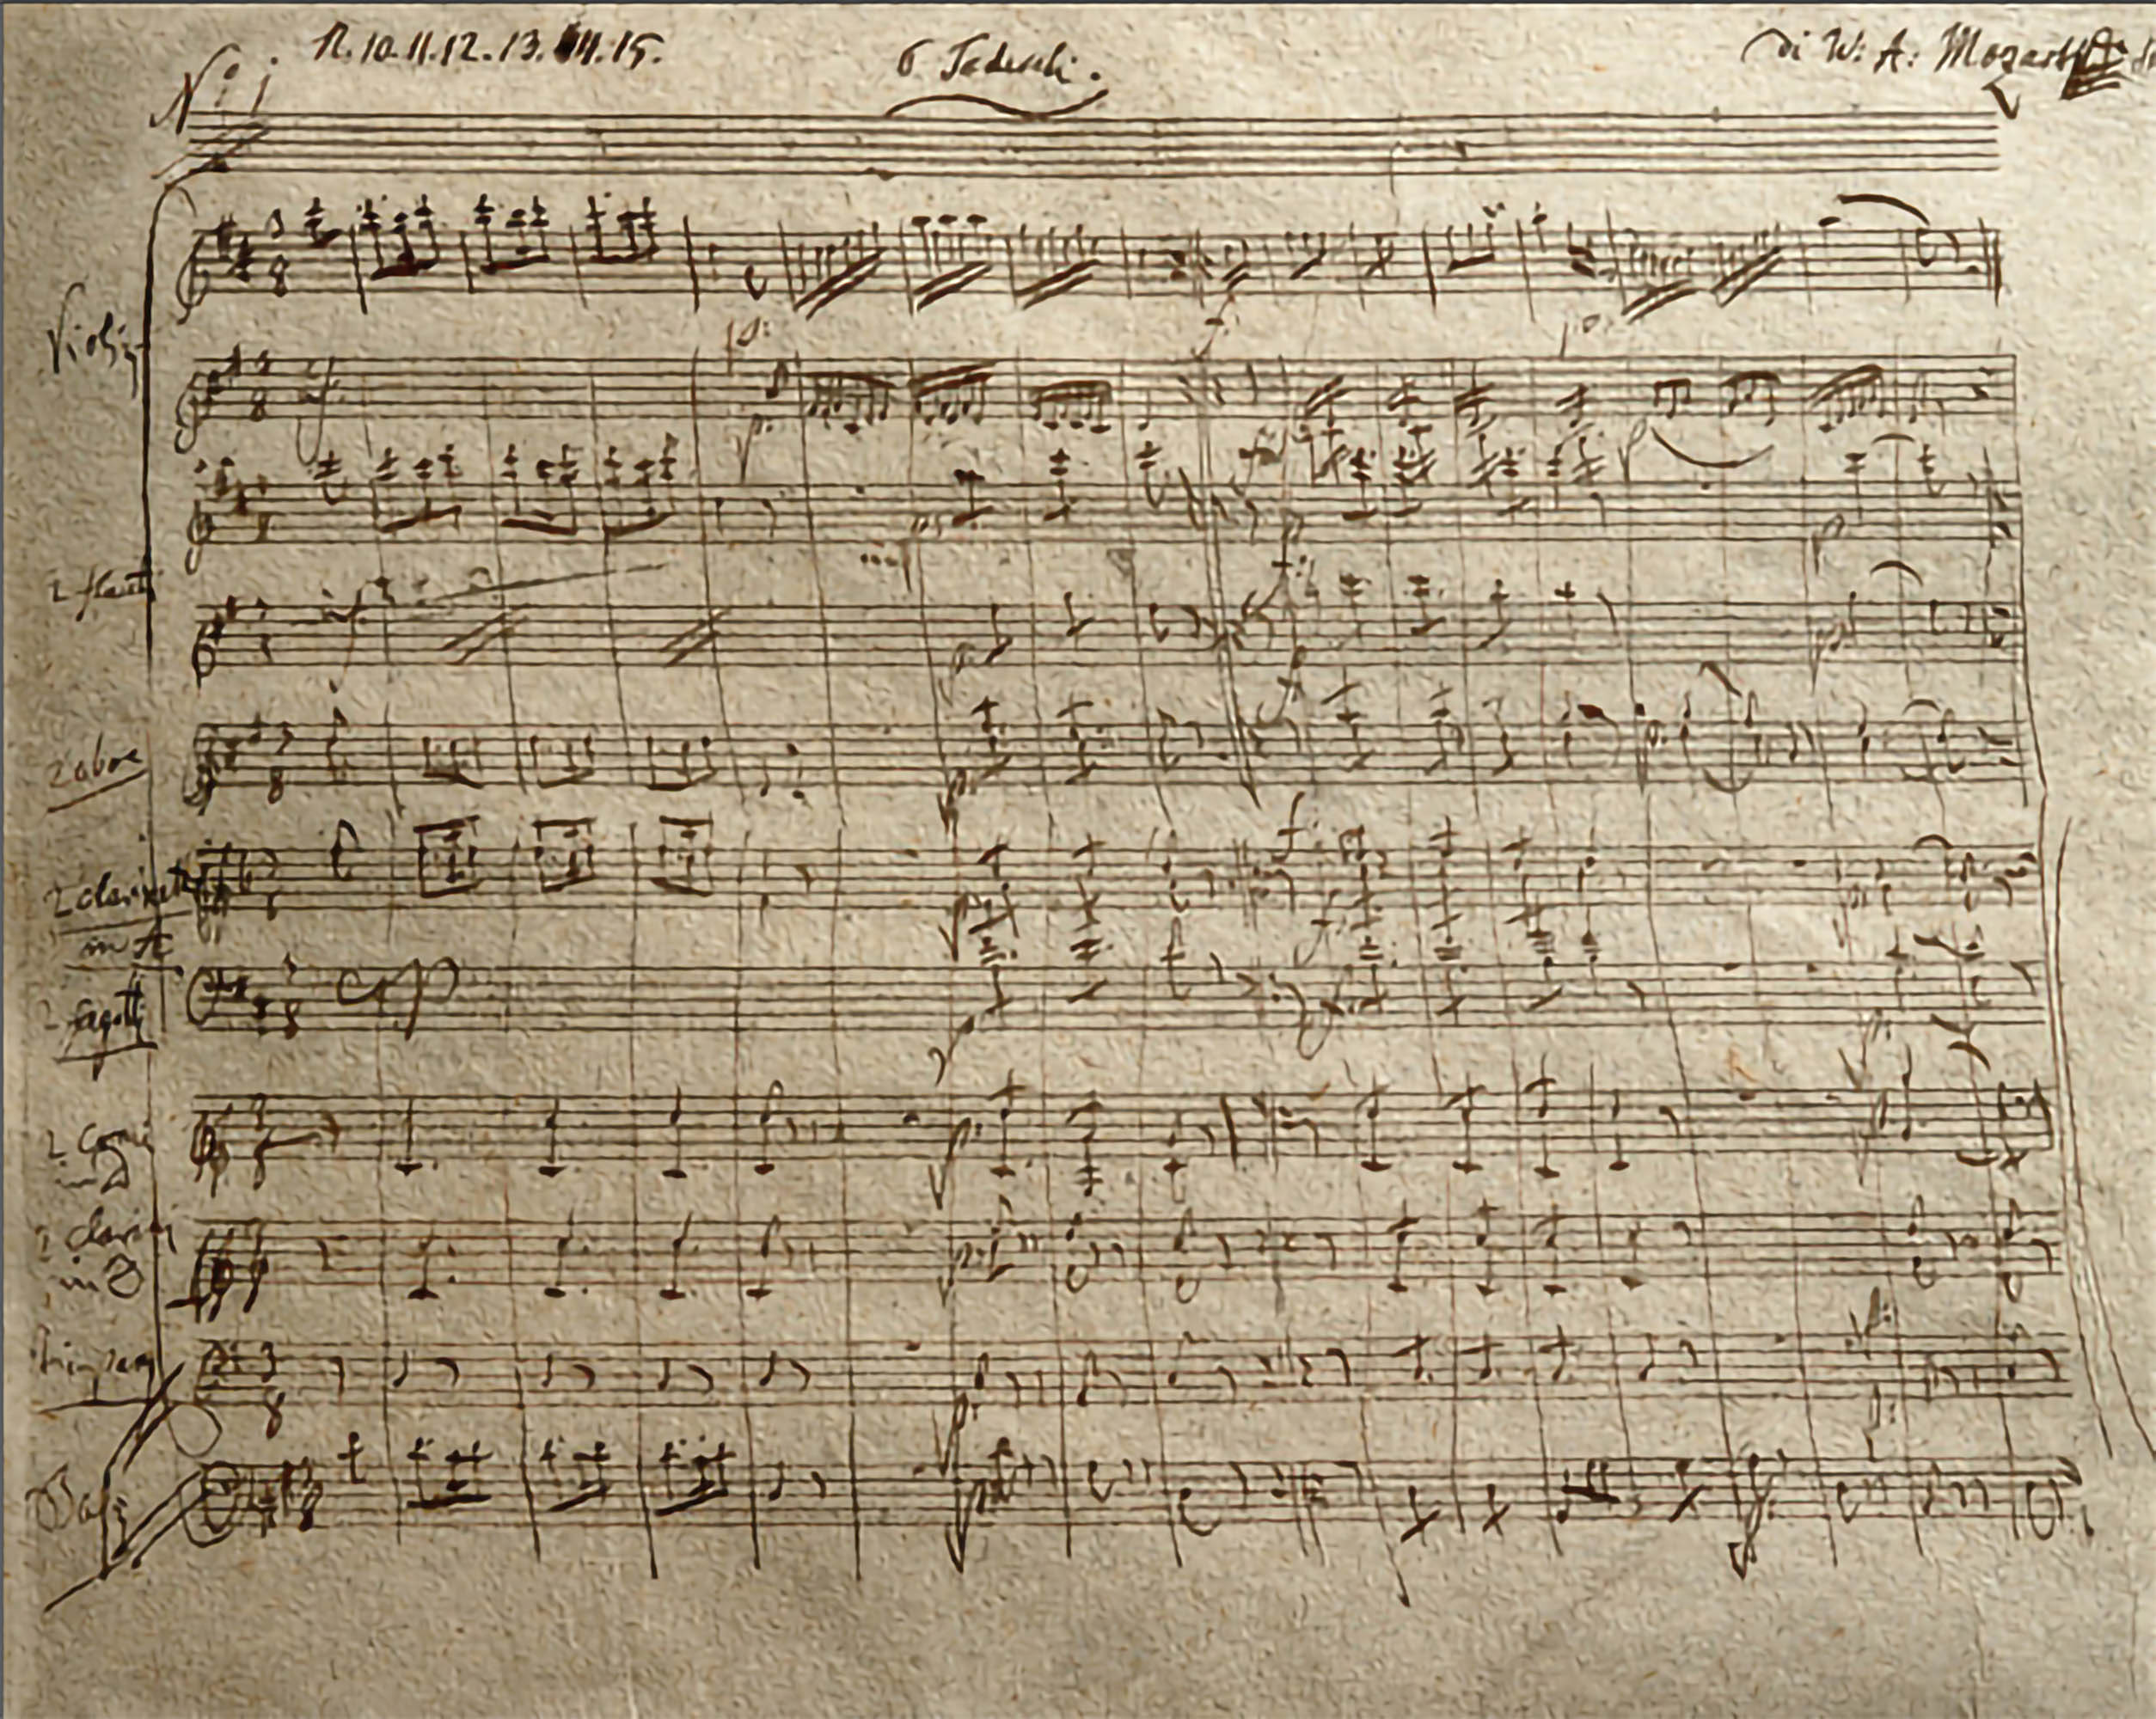 N. 10. 11. 12. 13. 14. 15.
6 Tedeschi.
di W: A: Mozart
N: 1
Violini
2 flauti
2 oboe
2 clarinetti
in A
2 fagotti
2 Corni
in D
2 clarini
in D
Timpany
Baßi